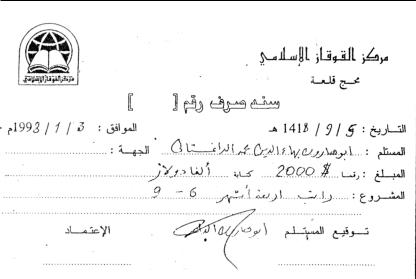 مركز القوقاز الإسلامي
محج قلعة
مركز القوقاز الإسلامي
سند صرف رقم [ ]
التاريخ : 5 / 9 / 1418 هـ الموافق : 3 / 1 / 1993 م
المستلم : ابو هارون بهاء الدين محمد الداغستاني الجهة :
المبلغ : رقما $ 2000 كتابة ألفا دولار
المشروع : راتب اربعة أشهر 6 - 9
توقيع المستلم الإعتماد